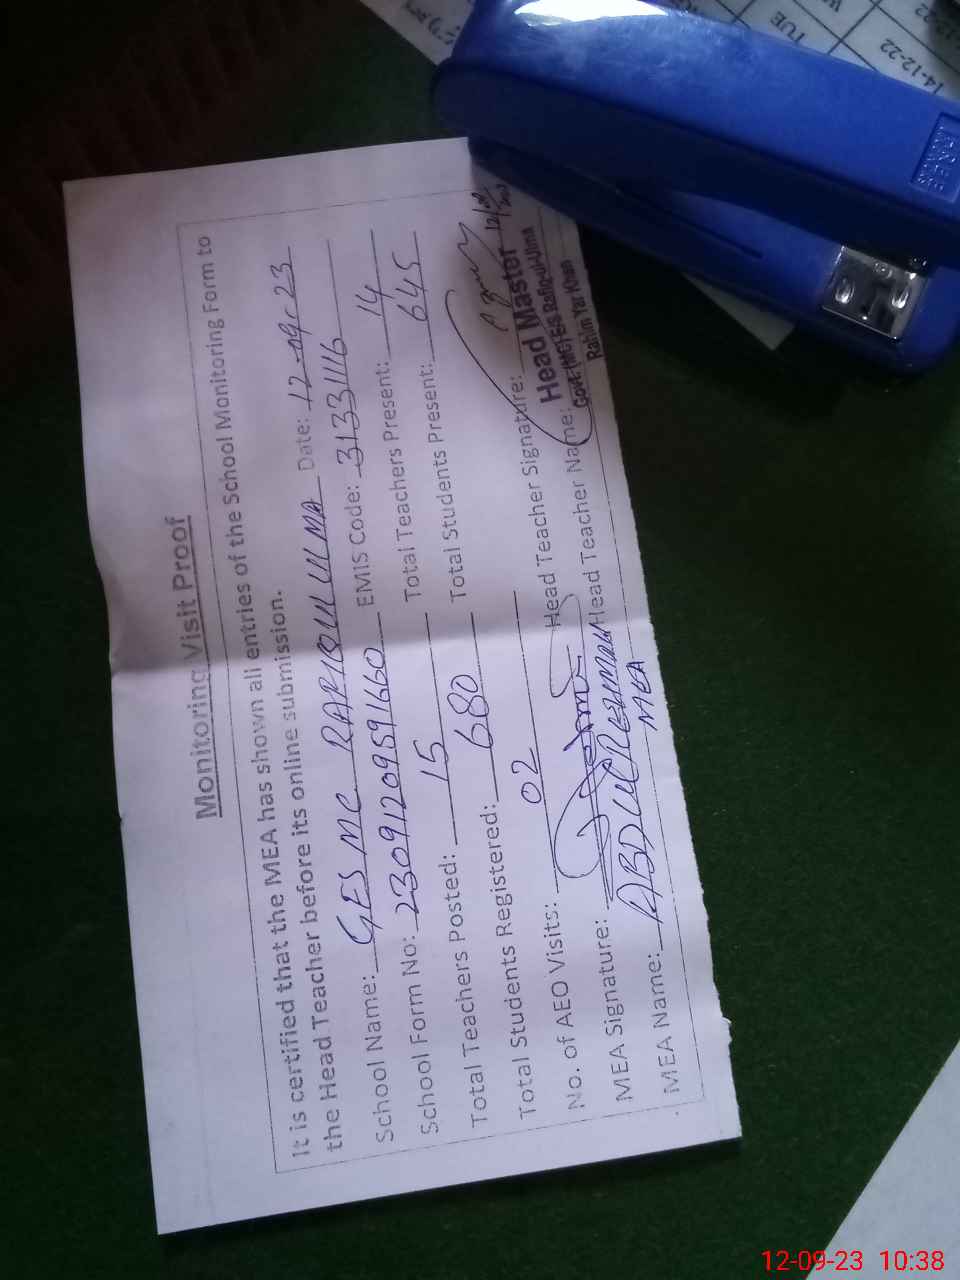 Monitoring Visit Proof
It is certified that the MEA has shown all entries of the School Monitoring Form to
the Head Teacher before its online submission.
School Name: GES MC RAFIQUL ULMA Date: 12-09-23
School Form No: 23091209591660 EMIS Code: 31331116
Total Teachers Posted: 15 Total Teachers Present: 14
Total Students Registered: 680 Total Students Present: 645
No. of AEO Visits: 02
MEA Signature: Head Teacher Signature:
MEA Name: ABDUL REHMAN Head Teacher Name:
MEA
Head Master
Govt: (MC) E/S Rafiqul-Ulma
Rahim Yar Khan
TUE
14-12-22
12-09-23 10:38